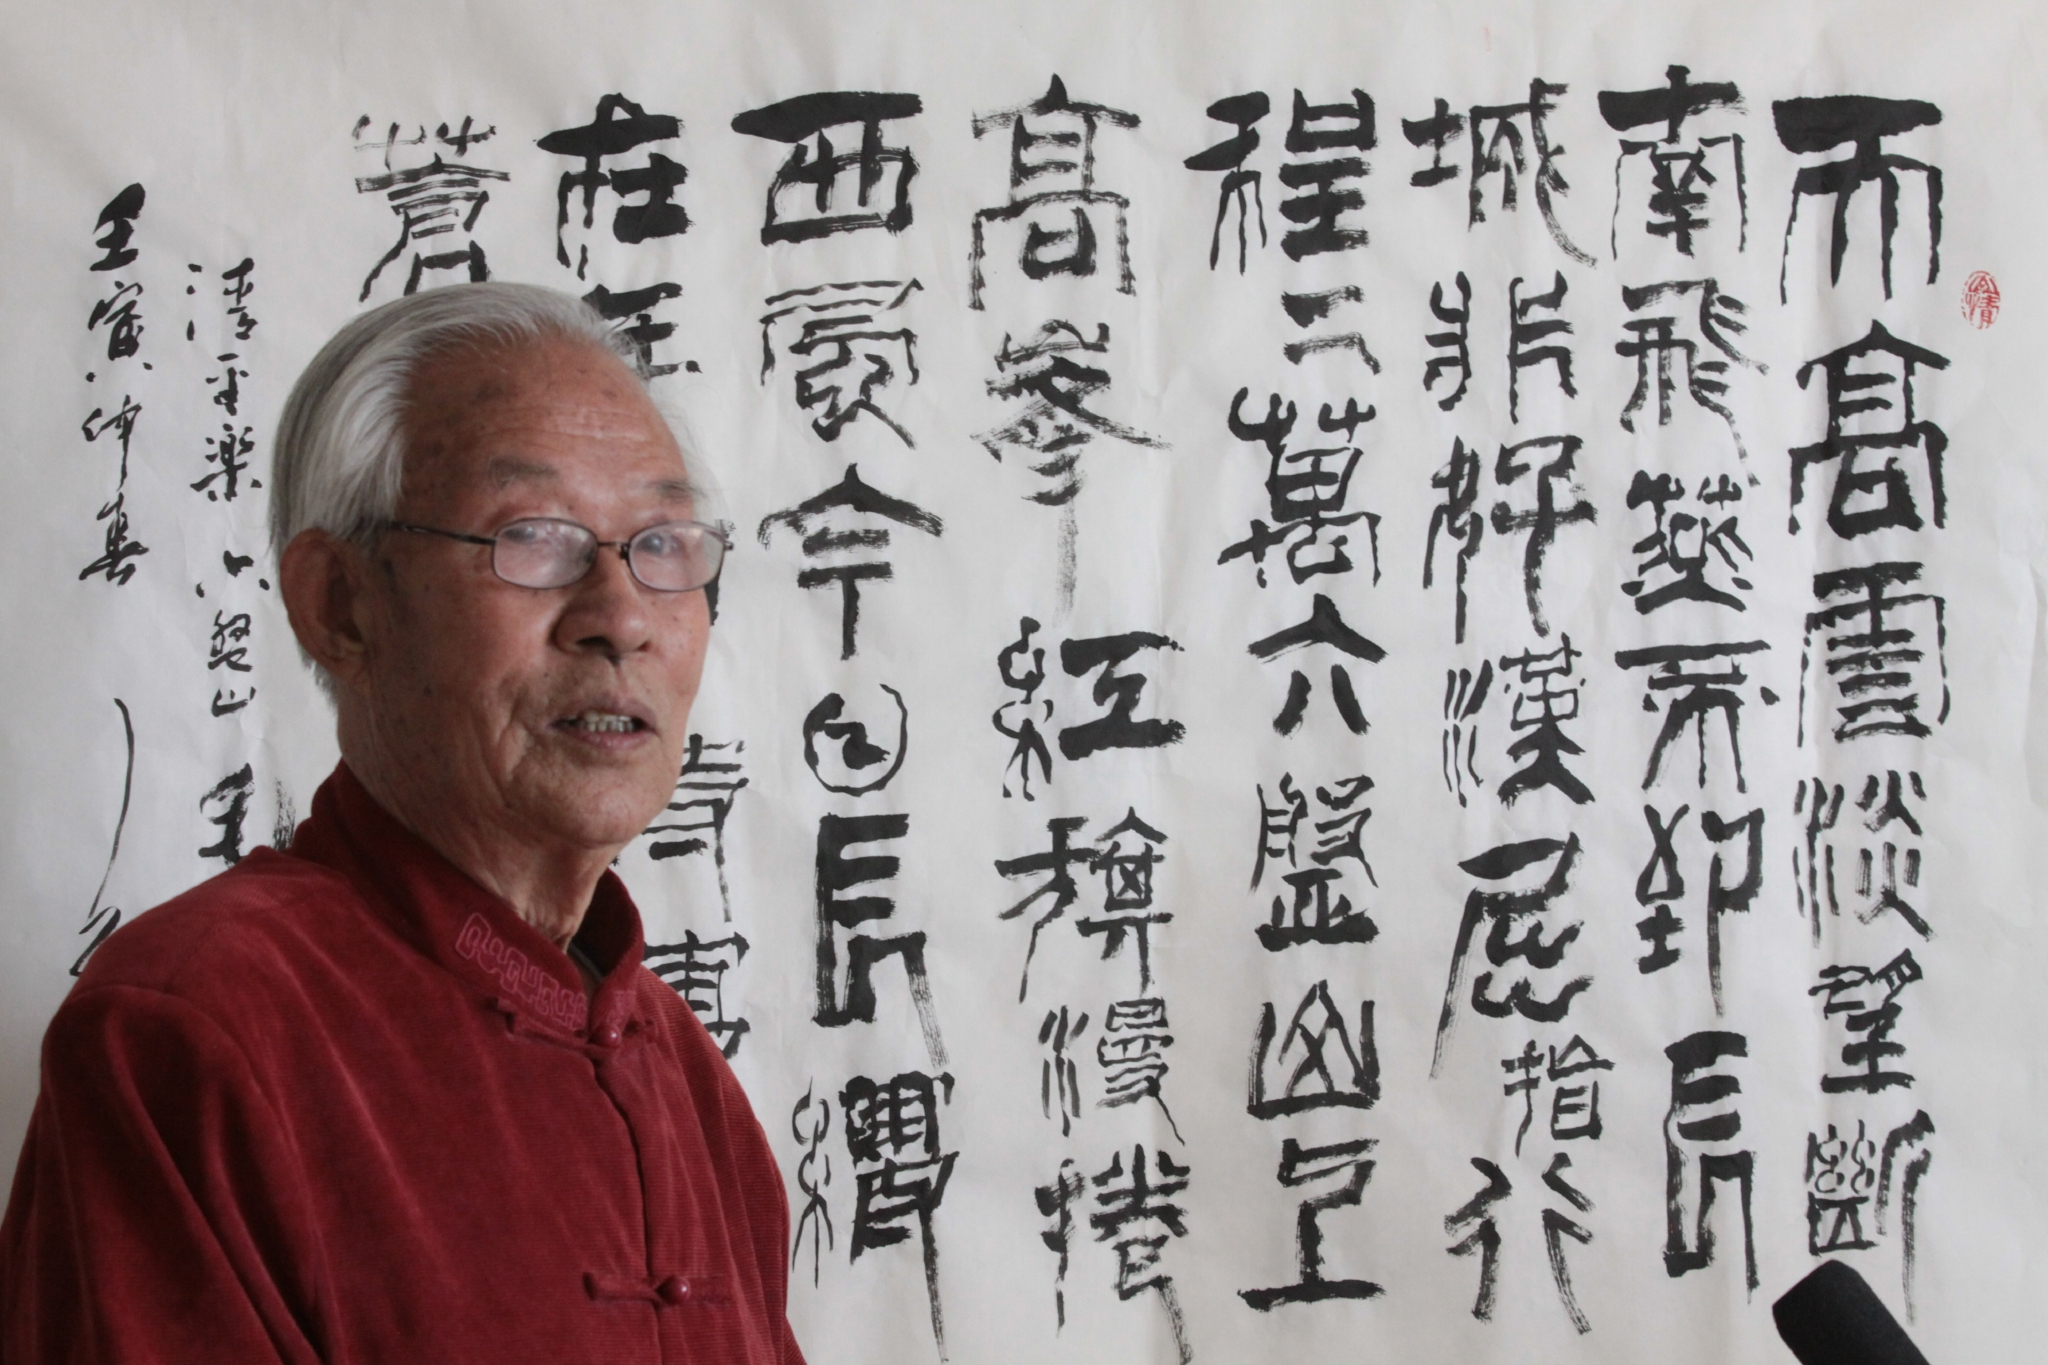 天高雲淡望斷
南飛燕不到長
城非好漢屈指行
程二萬六盤山上
高峯紅旗漫捲
西風今日長纓
在
蒼
清平樂 六盤山 毛
壬寅仲春